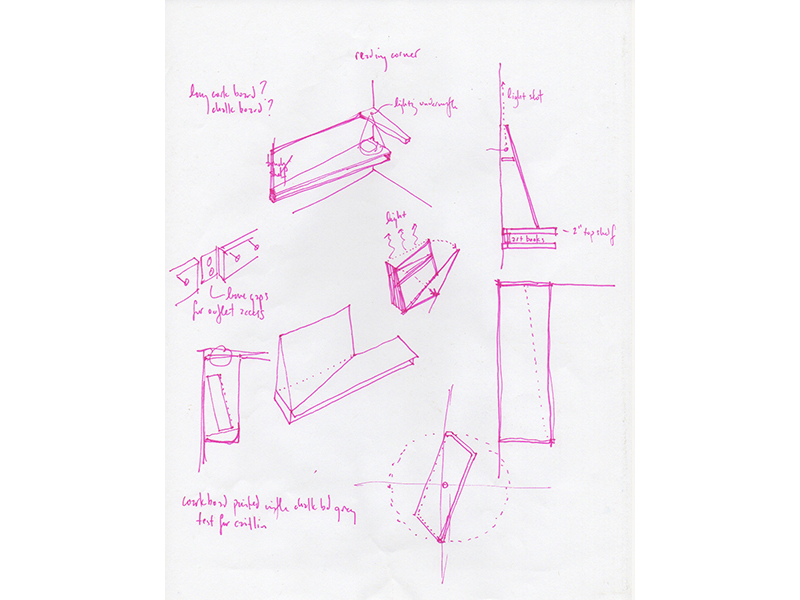 reading corner
long cork board?
chalk board?
lights underneath
light slot
light
2" top shelf
art books
leave gaps
for outlet access
coarkboard painted with chalk bd grey
test for caitlin